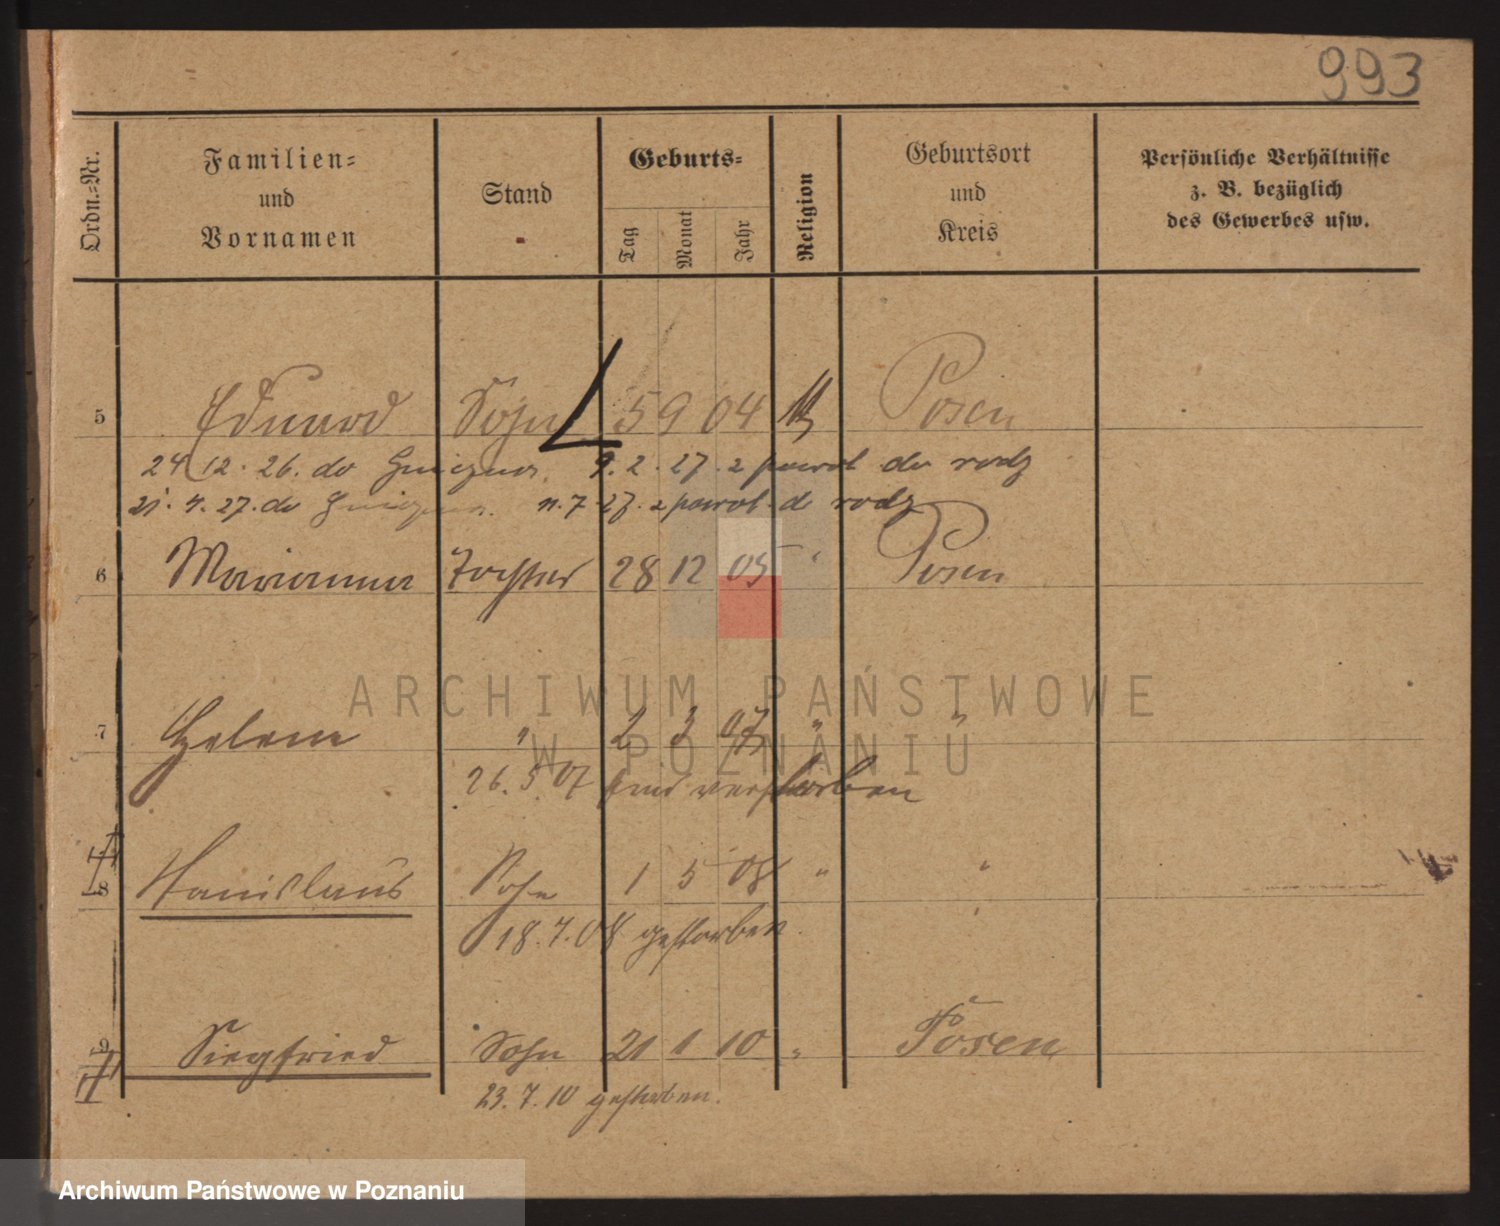 993
Ordn.-Nr.
Familien-
und
Vornamen
Stand
Geburts-
Tag
Monat
Jahr
Religion
Geburtsort
und
Kreis
Persönliche Verhältnisse
z. B. bezüglich
des Gewerbes usw.
5 Eduard Sohn 5 9 04 Posen
24 12. 26. do Gniezna. 9. 2. 27. z powrot do rodz
21. 4. 27. do Gniezna. 11. 7 27. z powrot. do rodz
6 Marianna Tochter 28 12 05 " Posen
7 Helene " 2 3 07 " "
26. 5. 07 verstorben
8 Stanislaus Sohn 1 5 08 " "
18. 7. 08 gestorben.
9 Siegfried Sohn 21 1 10 " Posen
23. 7. 10 gestorben.
ARCHIWUM PAŃSTWOWE
W POZNANIU
Archiwum Państwowe w Poznaniu